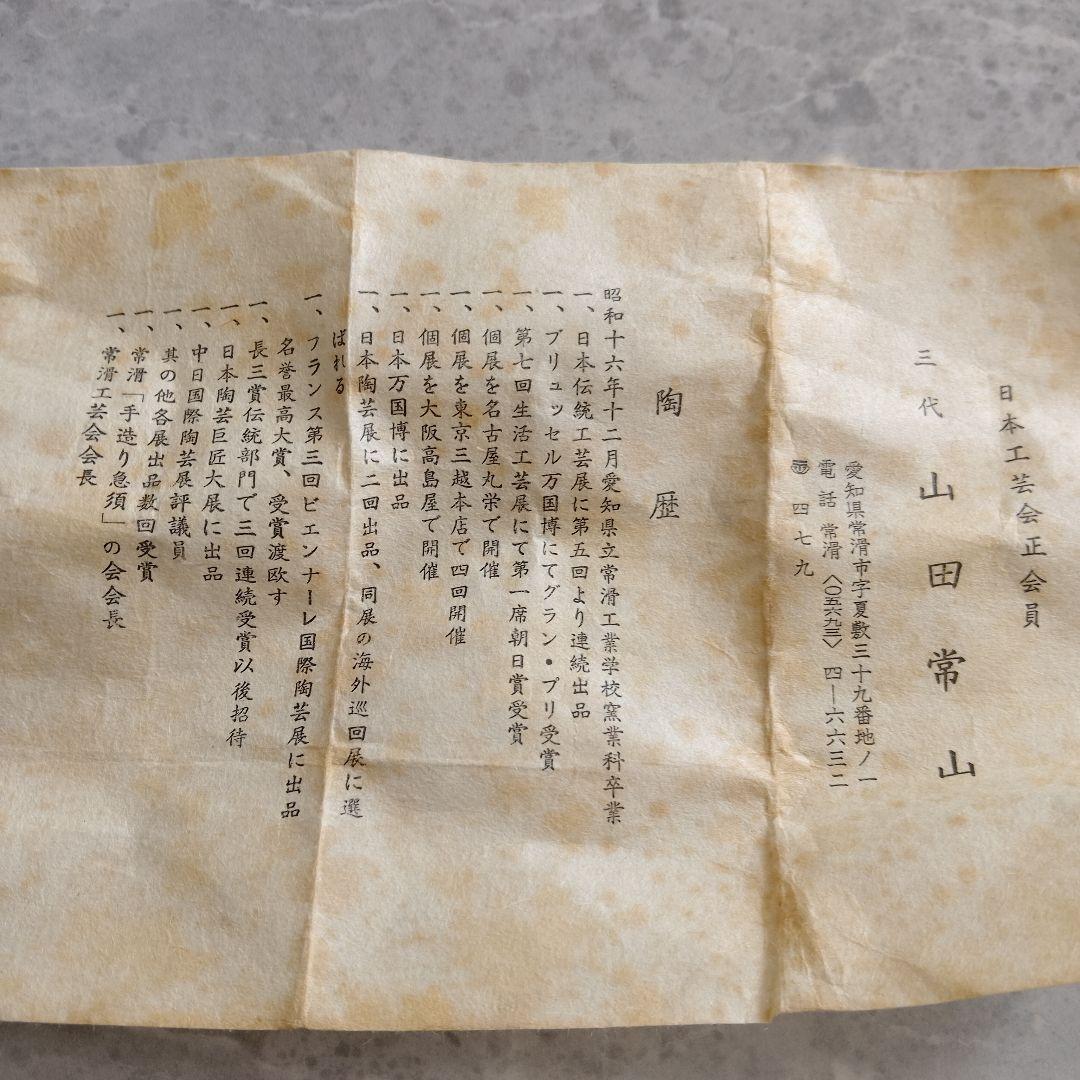 日本工芸会正会員
三代 山田常山
愛知県常滑市字夏敷三十九番地ノ一
電話 常滑〈〇五六九三〉四―六六三二
四七九
陶歴
昭和十六年十二月愛知県立常滑工業学校窯業科卒業
一、日本伝統工芸展に第五回より連続出品
一、ブリュッセル万国博にてグラン・プリ受賞
一、第七回生活工芸展にて第一席朝日賞受賞
一、個展を名古屋丸栄で開催
一、個展を東京三越本店で四回開催
一、個展を大阪高島屋で開催
一、日本万国博に出品
一、日本陶芸展に二回出品、同展の海外巡回展に選
ばれる
一、フランス第三回ビエンナーレ国際陶芸展に出品
名誉最高大賞、受賞渡欧す
一、長三賞伝統部門で三回連続受賞以後招待
一、日本陶芸巨匠大展に出品
一、中日国際陶芸展評議員
一、其の他各展出品数回受賞
一、常滑「手造り急須」の会会長
一、常滑工芸会会長